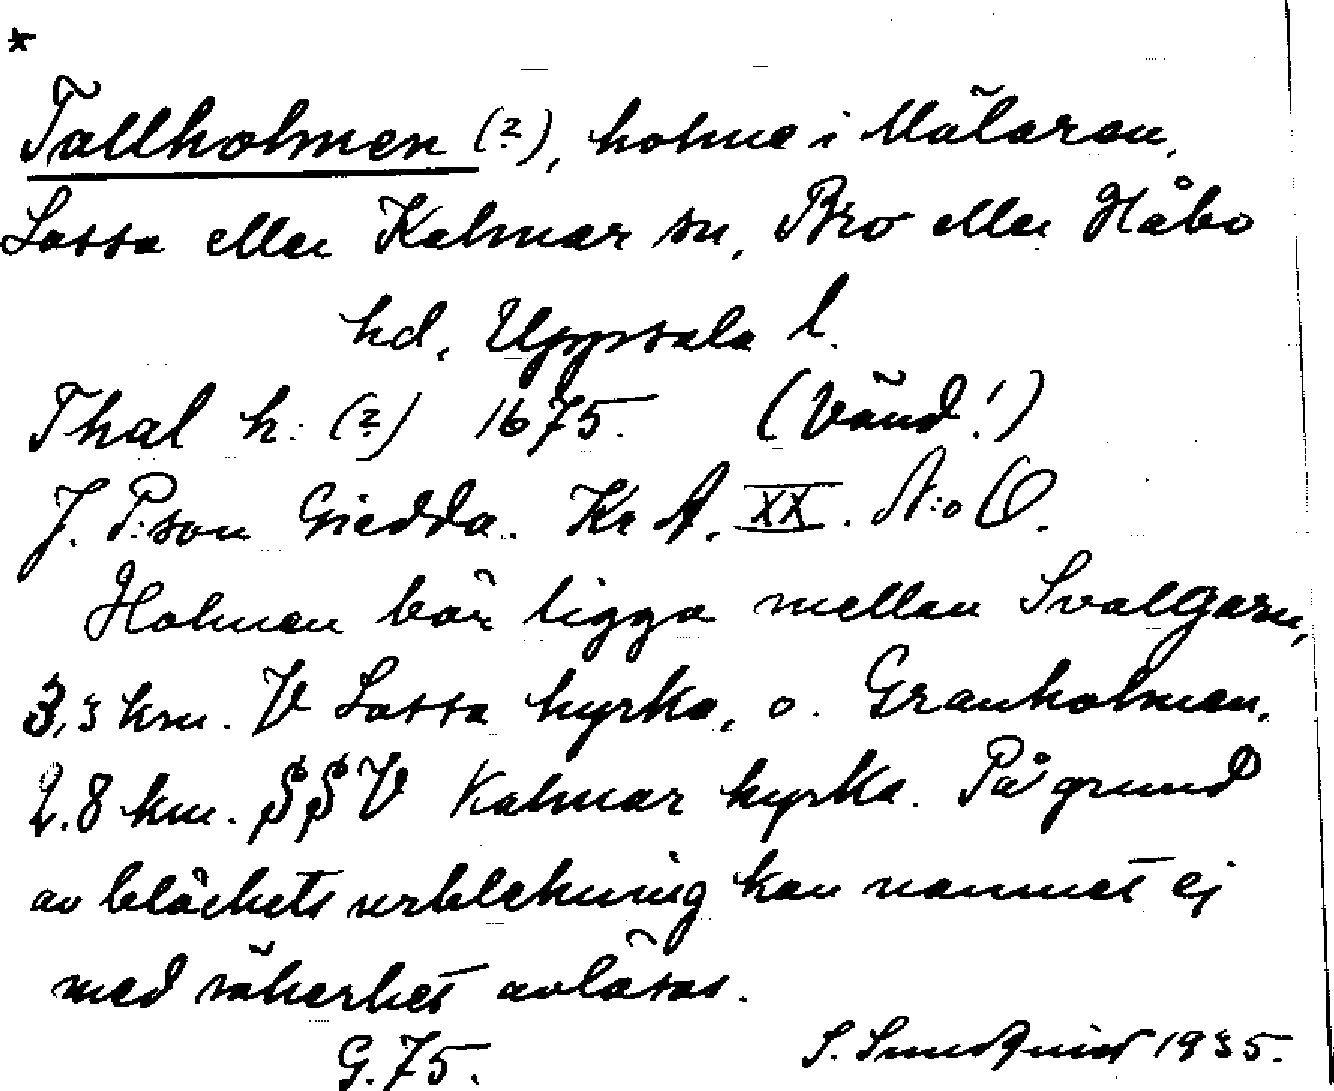 *
Tallholmen (?), holme i Mälaren,
Lossa eller Kalmar sn, Bro eller Håbo
hd, Uppsala l.
Thal h: (?) 1675. (Vänd!)
J. P:son Giedda. Kr A. XX. N:o O.
Holmen bör ligga mellan Svalgarn,
3,5 km. V Lossa kyrka, o. Granholmen,
2,8 km. SSV Kalmar kyrka. På grund
av bläckets urblekning kan namnet ej
med säkerhet avläsas.
G. 75. S. Sundquist 1935.